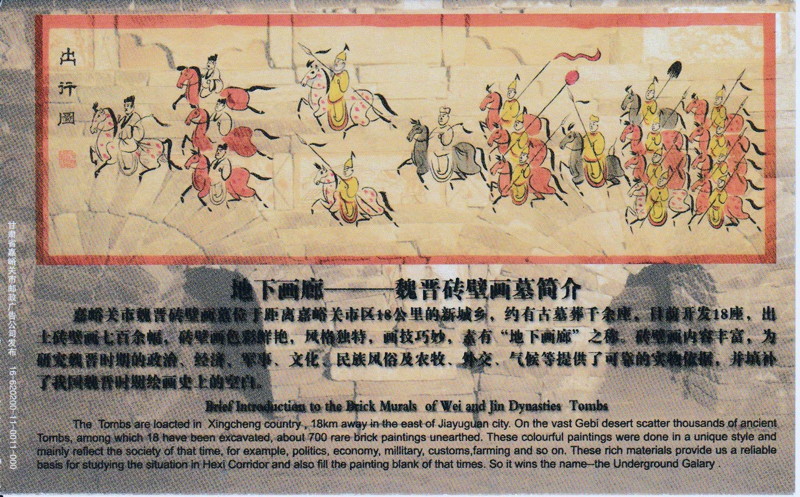 出行图
地下画廊———魏晋砖壁画墓简介
嘉峪关市魏晋砖壁画墓位于距离嘉峪关市区18公里的新城乡，约有古墓葬千余座，目前开发18座，出
土砖壁画七百余幅，砖壁画色彩鲜艳，风格独特，画技巧妙，素有“地下画廊”之称。砖壁画内容丰富，为
研究魏晋时期的政治、经济、军事、文化、民族风俗及农牧、外交、气候等提供了可靠的实物依据，并填补
了我国魏晋时期绘画史上的空白。
Brief Introduction to the Brick Murals of Wei and Jin Dynasties Tombs
The Tombs are loacted in Xingcheng country , 18km away in the east of Jiayuguan city. On the vast Gebi desert scatter thousands of ancient
Tombs, among which 18 have been excavated, about 700 rare brick paintings unearthed. These colourful paintings were done in a unique style and
mainly reflect the society of that time, for example, politics, economy, millitary, customs,farming and so on. These rich materials provide us a reliable
basis for studying the situation in Hexi Corridor and also fill the painting blank of that times. So it wins the name--the Underground Galary .
甘肃省嘉峪关市邮政广告公司发布 16-620200-11-0011-000